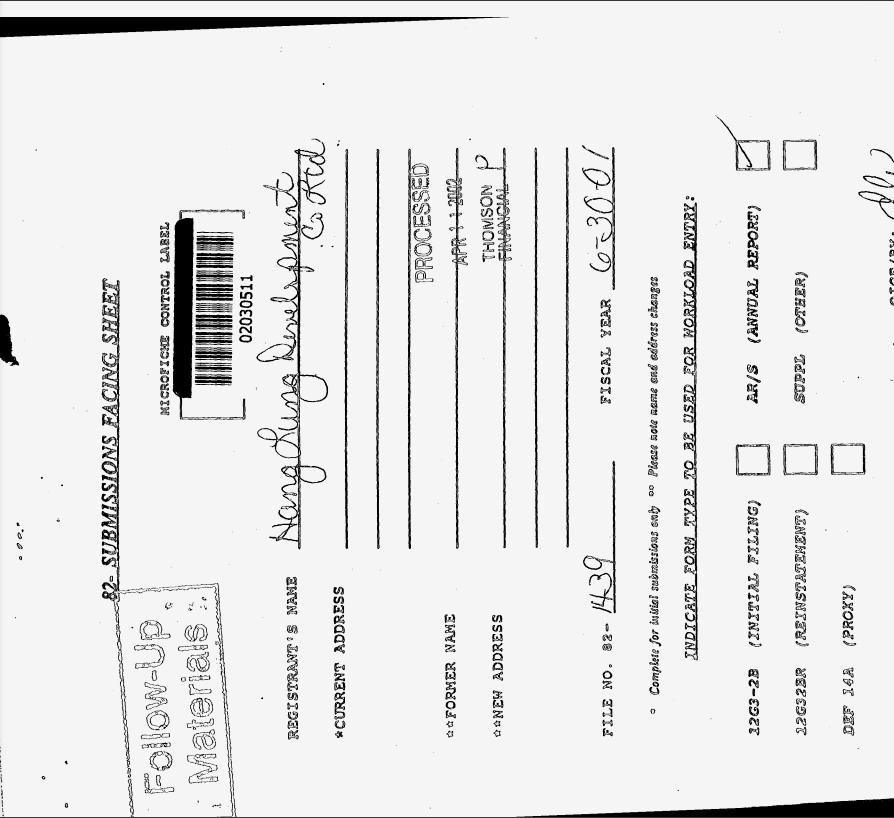 Follow-Up
Materials
82- SUBMISSIONS FACING SHEET
MICROFICHE CONTROL LABEL
02030511
REGISTRANT'S NAME Hang Lung Development
Co Ltd
*CURRENT ADDRESS
PROCESSED
**FORMER NAME APR 11 2002
**NEW ADDRESS THOMSON P
FINANCIAL
FILE NO. 82- 1439 FISCAL YEAR 6-30-01
° Complete for initial submissions only °° Please note name and address changes
INDICATE FORM TYPE TO BE USED FOR WORKLOAD ENTRY:
12G3-2B (INITIAL FILING) AR/S (ANNUAL REPORT)
12G32BR (REINSTATEMENT) SUPPL (OTHER)
DEF 14A (PROXY)